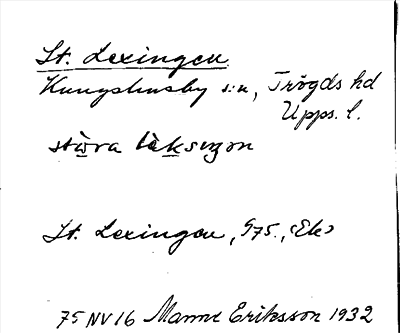 St. Lexingen
Kungshusby s:n, Trögds hd
Upps. l.
stωra lèksıŋon
St. Lexingen, G75., (Ek)
75 NV 16 Manne Eriksson 1932